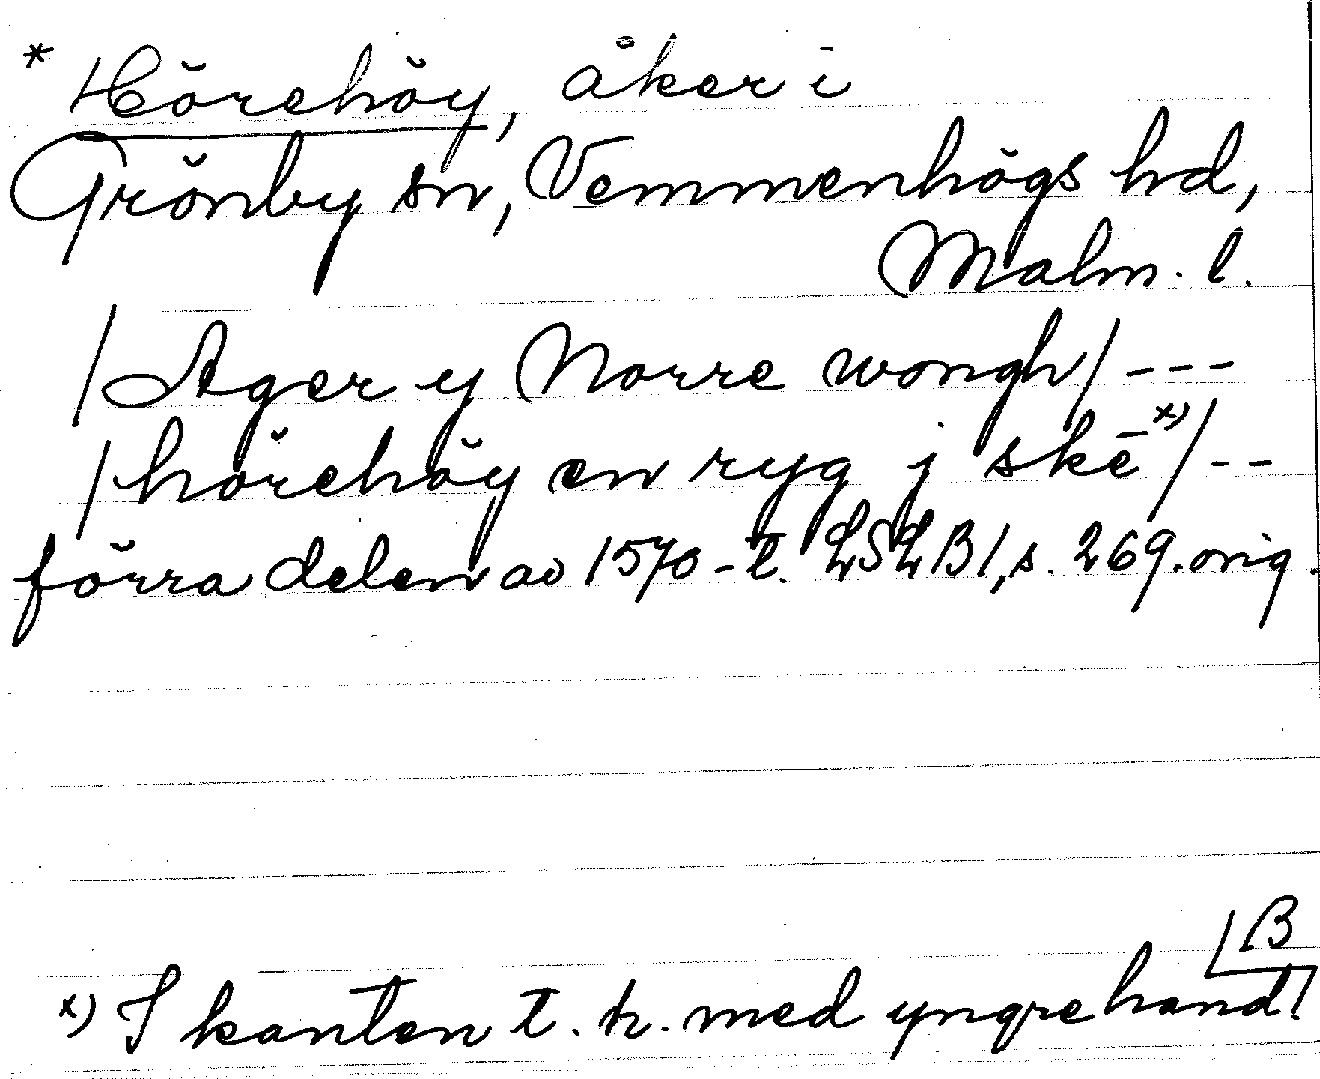 * Hörehöy, åker i
Grönby sn, Vemmenhögs hd,
Malm. l.
/Ager y Norre wongh/ ---
/hörehöy en ryg j skē x)/ --
förra delen av 1570-t. LSLB1, s. 269. orig.
B
x) I kanten t. h. med yngre hand!